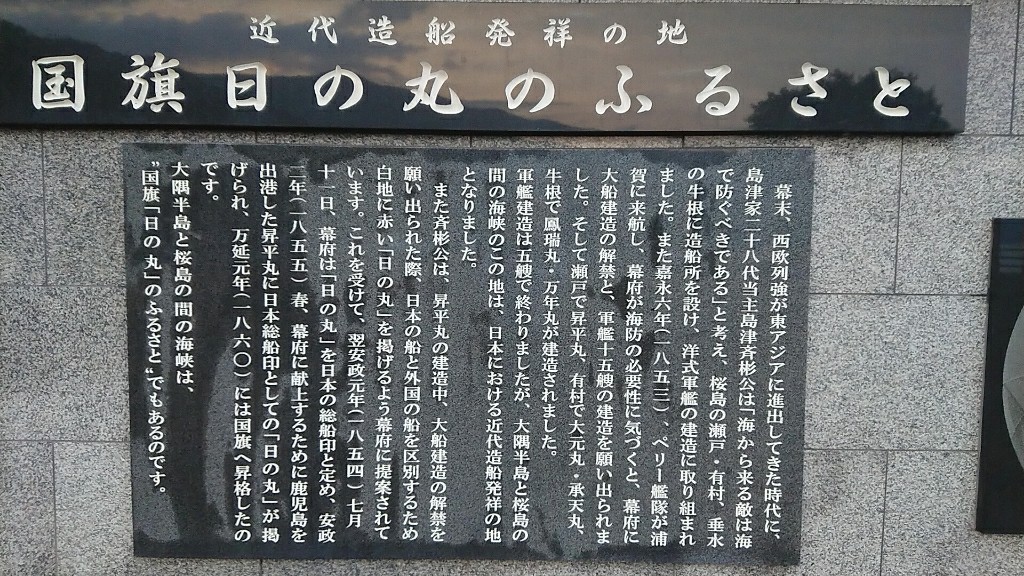 近代造船発祥の地
国旗日の丸のふるさと
幕末、西欧列強が東アジアに進出してきた時代に、
島津家二十八代当主島津斉彬公は「海から来る敵は海
で防ぐべきである」と考え、桜島の瀬戸・有村、垂水
の牛根に造船所を設け、洋式軍艦の建造に取り組まれ
ました。また嘉永六年(一八五三)、ペリー艦隊が浦
賀に来航し、幕府が海防の必要性に気づくと、幕府に
大船建造の解禁と、軍艦十五艘の建造を願い出られま
した。そして瀬戸で昇平丸、有村で大元丸・承天丸、
牛根で鳳瑞丸・万年丸が建造されました。
軍艦建造は五艘で終わりましたが、大隅半島と桜島の
間の海峡のこの地は、日本における近代造船発祥の地
となりました。
また斉彬公は、昇平丸の建造中、大船建造の解禁を
願い出られた際、日本の船と外国の船を区別するため
白地に赤い「日の丸」を掲げるよう幕府に提案されて
います。これを受けて、翌安政元年(一八五四)七月
十一日、幕府は「日の丸」を日本の総船印と定め、安政
二年(一八五五)春、幕府に献上するために鹿児島を
出港した昇平丸に日本総船印としての「日の丸」が掲
げられ、万延元年(一八六〇)には国旗へ昇格したの
です。
大隅半島と桜島の間の海峡は、
"国旗「日の丸」のふるさと"でもあるのです。